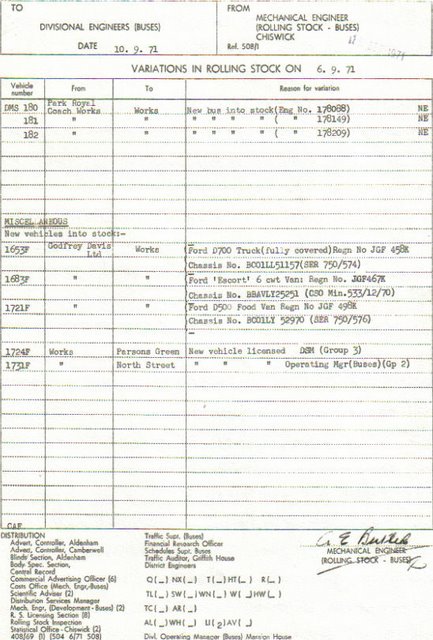 TO
FROM
DIVISIONAL ENGINEERS (BUSES)
MECHANICAL ENGINEER
(ROLLING STOCK - BUSES)
CHISWICK
DATE 10. 9. 71
Ref. 508/1
VARIATIONS IN ROLLING STOCK ON 6. 9. 71
Vehicle number From To Reason for variation
DMS 180 Park Royal Coach Works Works New bus into stock(Eng No. 178088) NE
181 " " " " " " ( " 178149) NE
182 " " " " " " ( " 178209) NE
MISCELLANEOUS
New vehicles into stock:-
1653F Godfrey Davis Ltd Works Ford D700 Truck(fully covered)Regn No JGF 458K
Chassis No. BC01LL51157(SER 750/574)
1683F " " Ford 'Escort' 6 cwt Van: Regn No. JGF467K
Chassis No. BBAVLY25251 (CSO Min.533/12/70)
1721F " " Ford D500 Food Van Regn No JGF 498K
Chassis No. BC01LY 52970 (SER 750/576)
1724F Works Parsons Green New vehicle licensed DSM (Group 3)
1731F " North Street " " " Operating Mgr(Buses)(Gp 2)
CAF
DISTRIBUTION
Advert. Controller, Aldenham
Advert. Controller, Camberwell
Blinds Section, Aldenham
Body Spec. Section,
Central Record
Commercial Advertising Officer (6)
Costs Office (Mech. Engr.-Buses)
Scientific Adviser (2)
Distribution Services Manager
Mech. Engr. (Development - Buses) (2)
R. S. Licensing Section (8)
Rolling Stock Inspection
Statistical Office - Chiswick (2)
408/69 (I) (504 6/71 508)
Traffic Supt. (Buses)
Financial Research Officer
Schedules Supt. Buses
Traffic Auditor, Griffith House
District Engineers
Q(_) NX(_) T(_)HT(_) R(_)
TL(_) SW(_)WN(_) W(_)HW(_)
TC(_) AR(_)
AL(_) WH(_) U(2)AV(_)
Divl. Operating Manager (Buses) Mansion House
MECHANICAL ENGINEER
(ROLLING STOCK - BUSES)